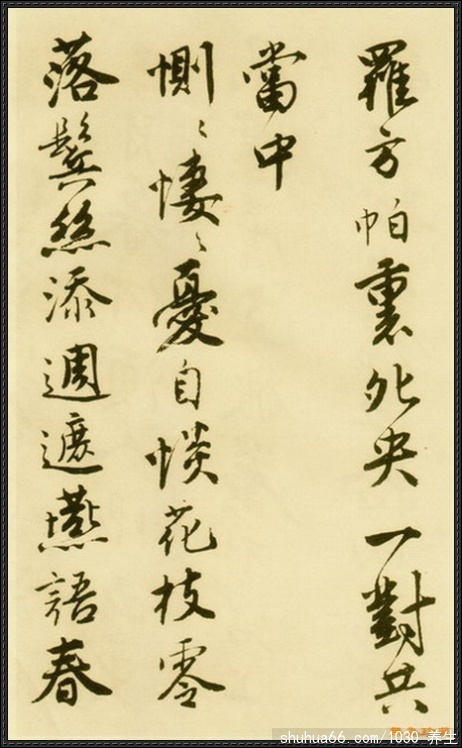 羅方帕裹夗央一對共
當中
惻〻悽〻憂自惔花枝零
落鬢絲添週遮燕語春
shuhua66.com/1030-养生